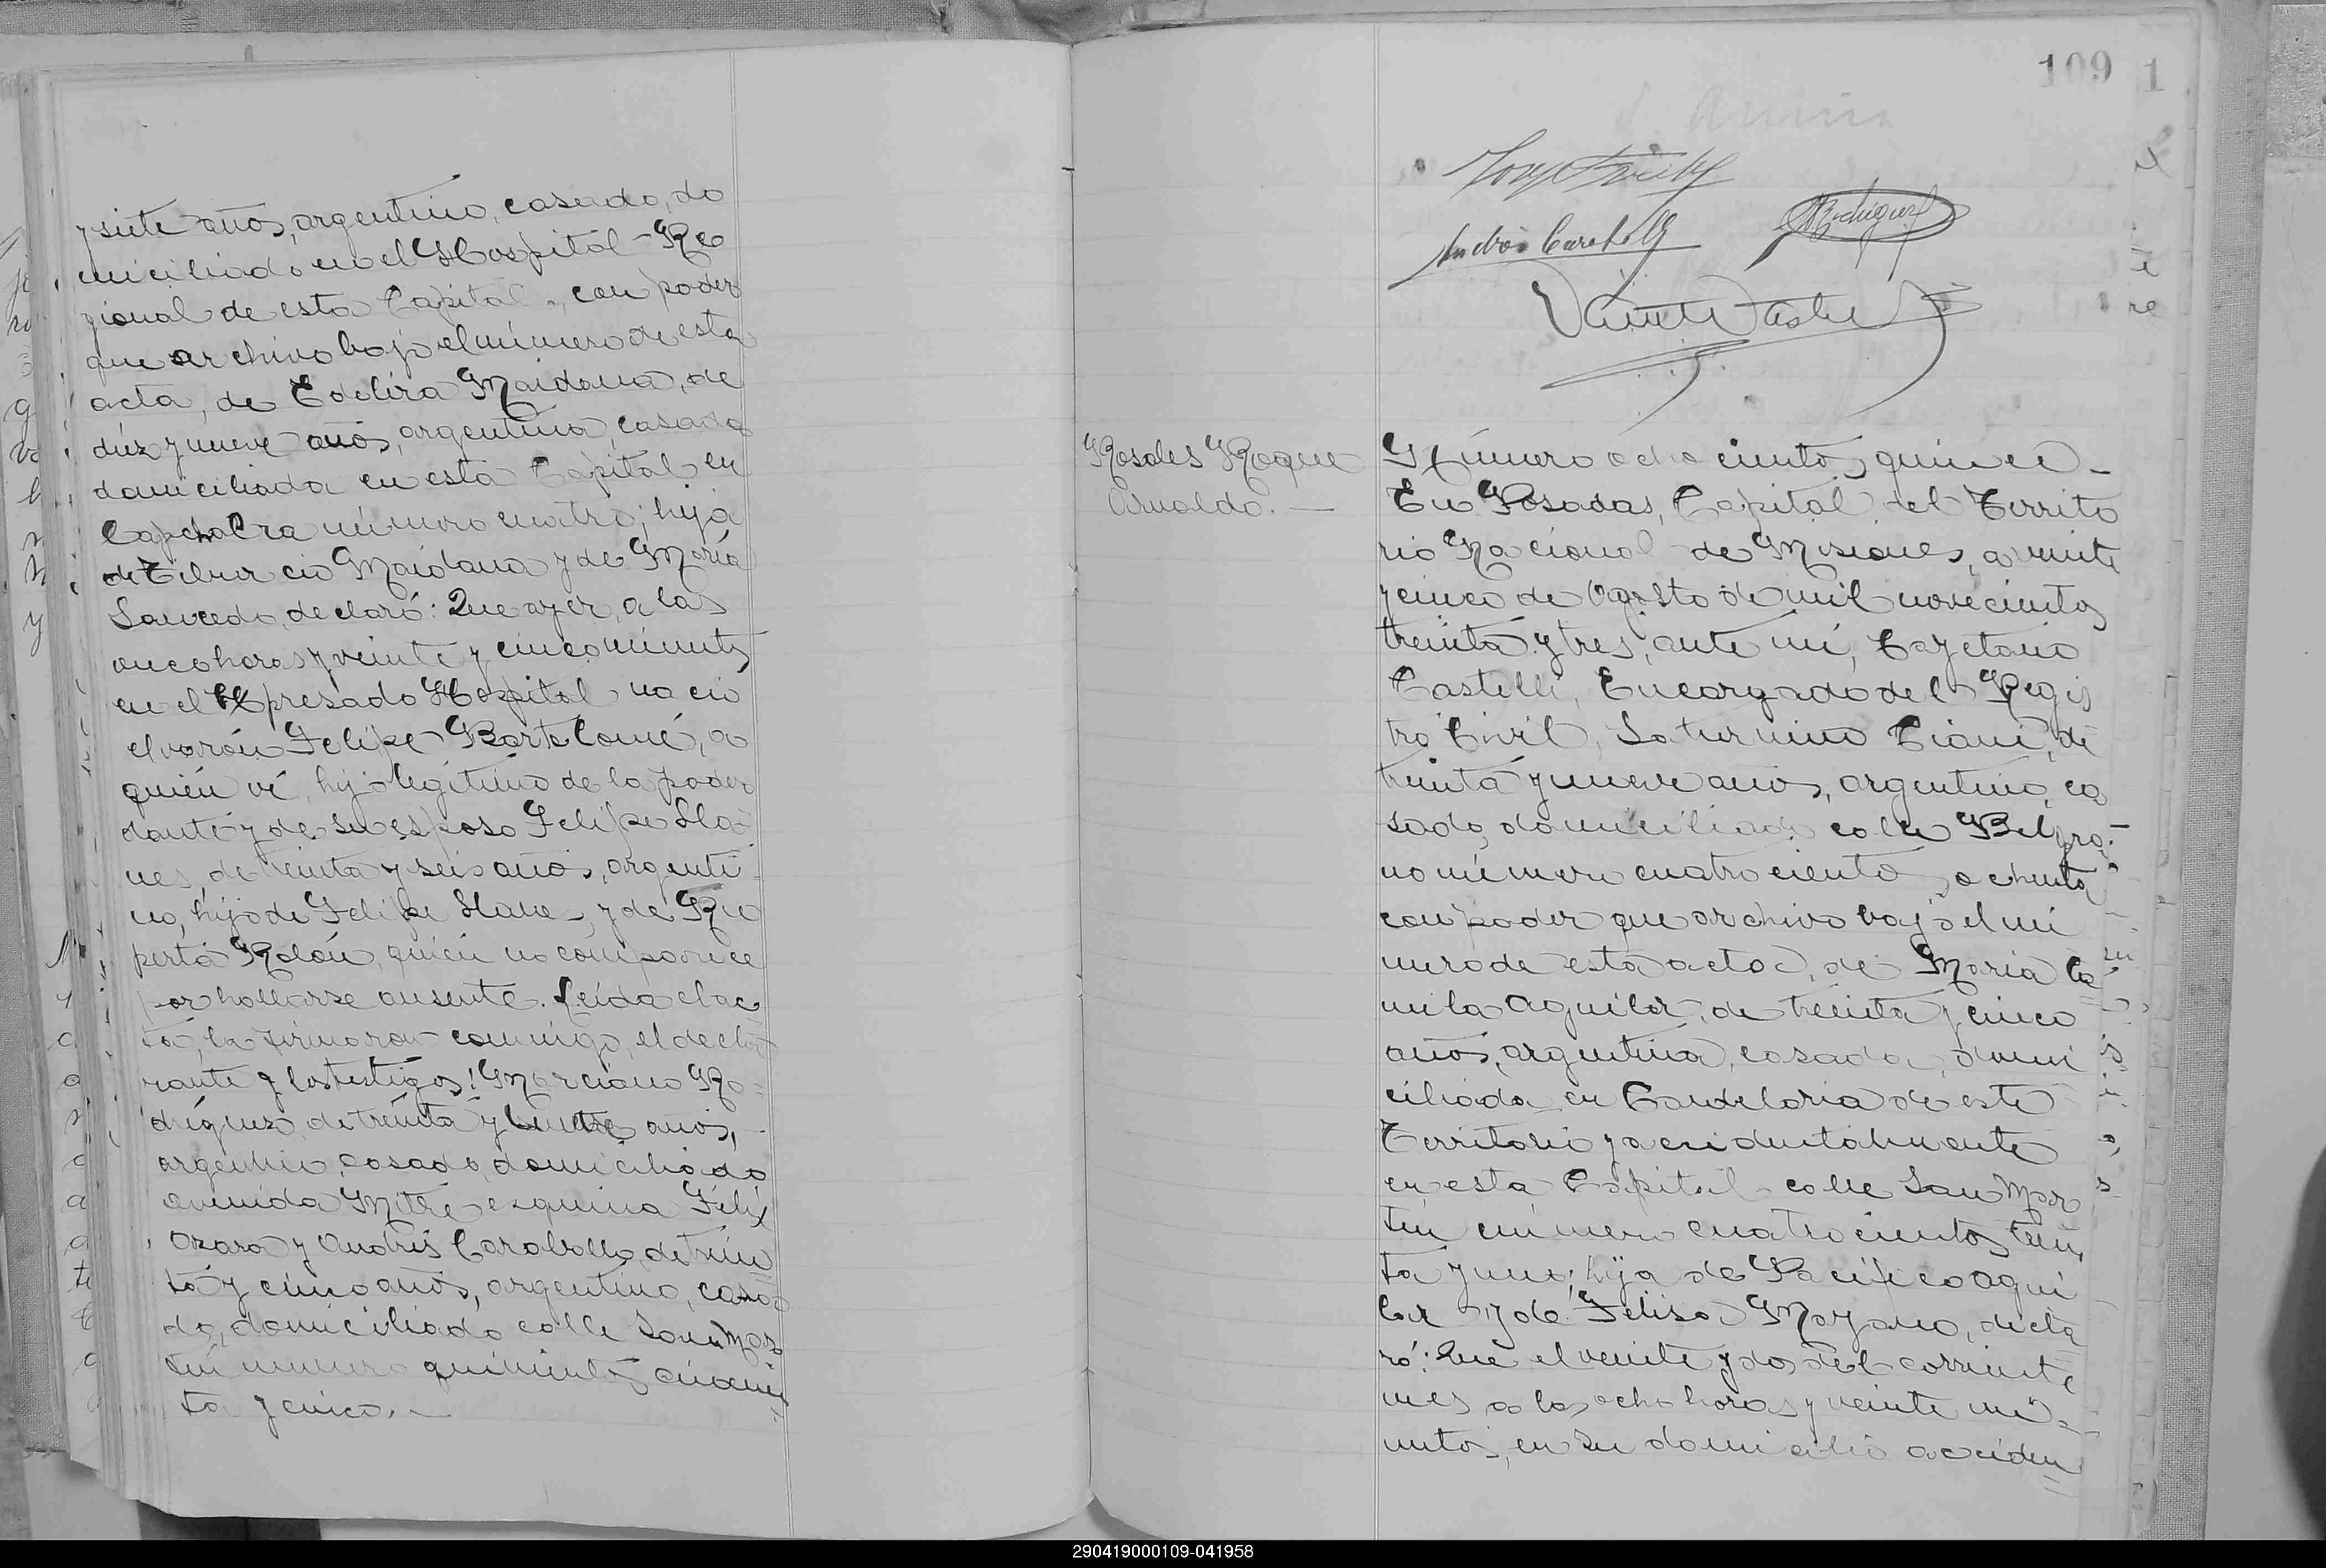 y siete años, argentino, casado, do
miciliado en el Hospital Re
gional de esta Capital, con poder
que archivo bajo el número de esta
acta, de Edelira Maidana, de
diez y nueve años, argentina, casada
domiciliada en esta Capital en
la número cuatro; hija
de Tiburcio Maidana y de María
Saucedo, declaró: Que ayer, a las
once horas y veinte y cinco minutos
en el expresado Hospital nació
el varón Felipe Bartolomé, a
quién ví, hijo legítimo de la poder
dante y de su esposo Felipe Lla
nes, de treinta y seis años, argenti
no, hijo de Felipe Llanes y de Ru
perta Rolón, quién no comparece
por hallarse ausente. Leída el ac
ta, la firmaron conmigo, el decla
rante y los testigos: Marciano Ro
dríguez, de treinta y años,
argentino, casado, domiciliado
avenida Mitre esquina Félix
Azara y Andrés Caraballo, de trein
ta y cinco años, argentino, casa
do, domiciliado calle San Mar
tín número quinientos cincuen
ta y cinco. —
109
Rodriguez
Rosales Roque
Arnaldo. —
Número ochocientos quince -
En Posadas, Capital del Territo
rio Nacional de Misiones, a veinte
y cinco de Agosto de mil novecientos
treinta y tres, ante mí, Cayetano
Castelli, Encargado del Regis
tro Civil, Saturnino Ciani, de
treinta y nueve años, argentino, ca
sado, domiciliado calle Belgra-
no número cuatrocientos ochenta
con poder que archivo bajo el nú
mero de esta acta, de María Ca
mila Aguilar, de treinta y cinco
años, argentina, casada, domi
ciliada en Candelaria de este
Territorio y accidentalmente
en esta Capital calle San Mar
tín número cuatrocientos trein
ta y uno; hija de Pacífico Agui
lar y de Felisa Moyano, decla
ró: Que el veinte y dos del corriente
mes a las ocho horas y veinte mi-
nutos, en su domicilio acciden
290419000109-041958